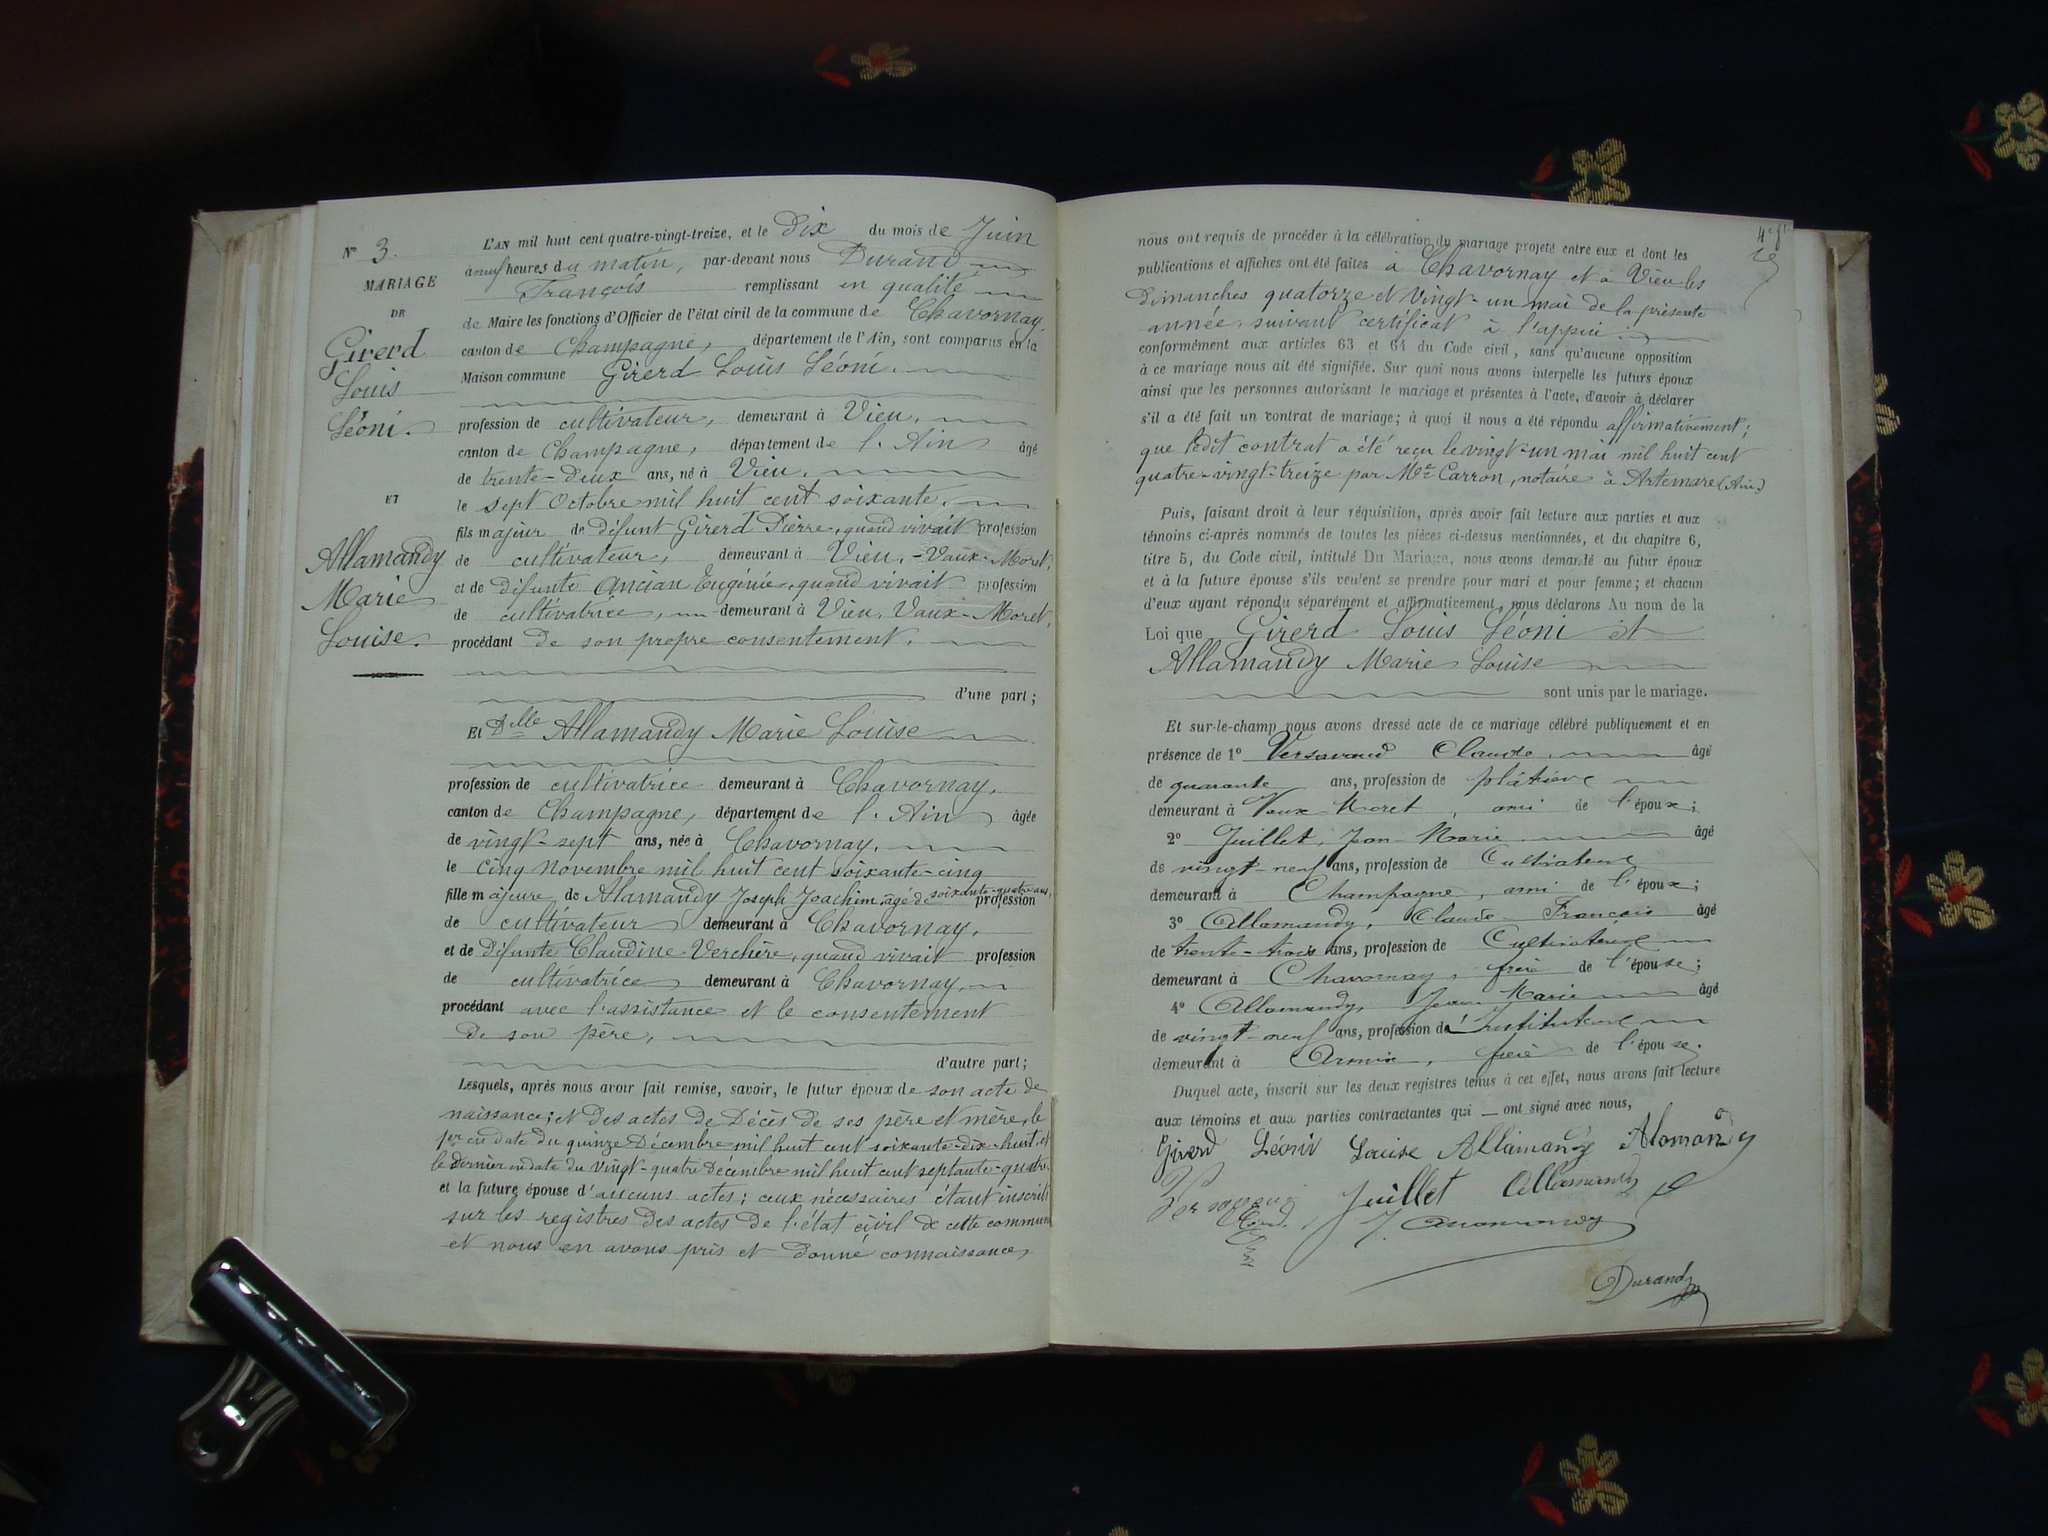 N° 3.
MARIAGE
DE
Girerd
Louis
Léoni.
ET
Allamandy
Marie
Louise.
L'AN mil huit cent quatre-vingt-treize, et le Dix du mois de Juin
à neuf heures du matin, par-devant nous Durand
François remplissant en qualité
de Maire les fonctions d'Officier de l'état civil de la commune de Chavornay,
canton de Champagne, département de l'Ain, sont comparus en la
Maison commune Girerd Louis Léoni.
profession de cultivateur, demeurant à Vieu,
canton de Champagne, département de l'Ain âgé
de trente-deux ans, né à Vieu,
le sept Octobre mil huit cent soixante,
fils majeur de défunt Girerd Pierre, quand vivait profession
de cultivateur, demeurant à Vieu,-Vaux-Moret,
et de défunte Ancian Eugénie, quand vivait profession
de cultivatrice, demeurant à Vieu, Vaux-Moret,
procédant de son propre consentement.
d'une part;
Et Dlle Allamandy Marie Louise
profession de cultivatrice demeurant à Chavornay,
canton de Champagne, département de l'Ain âgée
de vingt-sept ans, née à Chavornay,
le cinq novembre mil huit cent soixante-cinq
fille majeure de Alamandy Joseph Joachim, âgé de soixante-quatre ans, profession
de cultivateur demeurant à Chavornay,
et de défunte Claudine Verchère, quand vivait profession
de cultivatrice demeurant à Chavornay,
procédant avec l'assistance et le consentement
de son père,
d'autre part;
Lesquels, après nous avoir fait remise, savoir, le futur époux de son acte de
naissance; et des actes de Décès de ses père et mère, le
1er en date du quinze Décembre mil huit cent soixante-dix-huit, et
le dernier en date du vingt-quatre Décembre mil huit cent septante-quatre
et la future épouse d'aucuns actes; ceux nécessaires étant inscrits
sur les registres des actes de l'état civil de cette commune
et nous en avons pris et donné connaissance,
nous ont requis de procéder à la célébration du mariage projeté entre eux et dont les
publications et affiches ont été faites à Chavornay et à Vieu les
dimanches quatorze et vingt-un mai de la présente
année, suivant certificat à l'appui
conformément aux articles 63 et 64 du Code civil, sans qu'aucune opposition
à ce mariage nous ait été signifiée. Sur quoi nous avons interpellé les futurs époux
ainsi que les personnes autorisant le mariage et présentes à l'acte, d'avoir à déclarer
s'il a été fait un contrat de mariage; à quoi il nous a été répondu affirmativement;
que ledit contrat a été reçu le vingt-un mai mil huit cent
quatre-vingt-treize par Me Carron, notaire à Artemare (Ain)
Puis, faisant droit à leur réquisition, après avoir fait lecture aux parties et aux
témoins ci-après nommés de toutes les pièces ci-dessus mentionnées, et du chapitre 6,
titre 5, du Code civil, intitulé Du Mariage, nous avons demandé au futur époux
et à la future épouse s'ils veulent se prendre pour mari et pour femme; et chacun
d'eux ayant répondu séparément et affirmativement, nous déclarons Au nom de la
Loi que Girerd Louis Léoni et
Allamandy Marie Louise
sont unis par le mariage.
Et sur-le-champ nous avons dressé acte de ce mariage célébré publiquement et en
présence de 1° Versavaud Claude, âgé
de quarante ans, profession de plâtrier
demeurant à Vaux Moret, ami de l'époux;
2° Juillet, Jean Marie âgé
de vingt-neuf ans, profession de Cultivateur
demeurant à Champagne, ami de l'époux;
3° Allamandy, Claude François âgé
de trente-trois ans, profession de Cultivateur
demeurant à Chavornay, frère de l'épouse;
4° Allamandy, Jean Marie âgé
de vingt-neuf ans, profession d'Instituteur
demeurant à Armix, frère de l'épouse.
Duquel acte, inscrit sur les deux registres tenus à cet effet, nous avons fait lecture
aux témoins et aux parties contractantes qui ont signé avec nous,
Girerd Léoni Louise Allamandy Alamandy
Juillet Allamandy
Durand